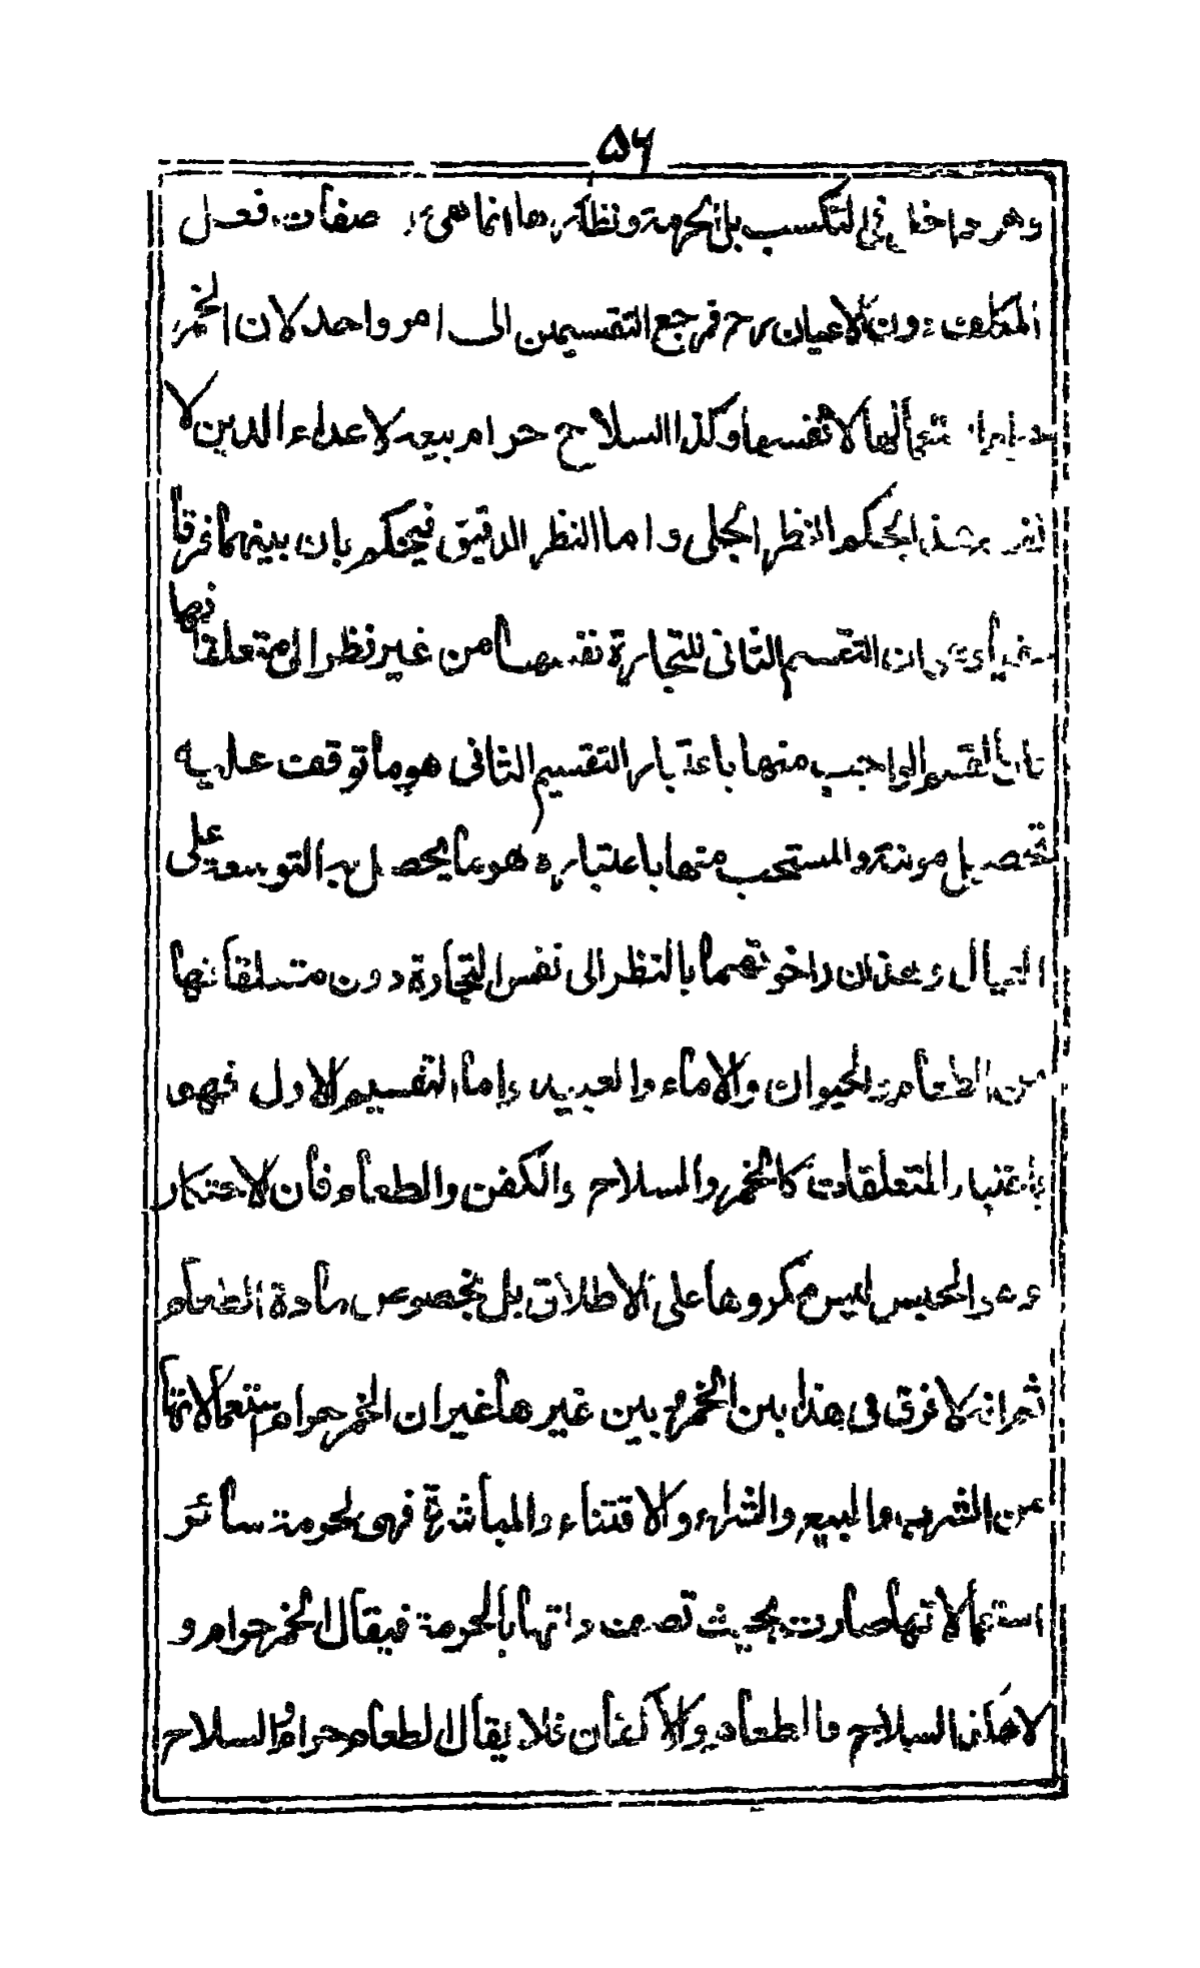 ۵۶
في التكسب بل الحرمة ونظائرها انما هي صفات فعل
المكلف دون الاعيان وح فمرجع التقسيمين الى امر واحد لان الخمر
لا نفسها وكذا السلاح حرام بيعه لاعداء الدين لا
الحكم النظر الجلى واما النظر الدقيق فيحكم بان بينهما فرقا
ان التقسيم الثانى للتجارة نفسها من غير نظر الى متعلقاتها
القسم الواجب منها باعتبار التقسيم الثانى هو ما توقف عليه
تحصيل مونته والمستحب منها باعتباره هو ما يحصل به التوسعة على
العيال وهذان واخوتهما بالنظر الى نفس التجارة دون متعلقاتها
من الطعام والحيوان والاماء والعبيد واما التقسيم الاول فهى
باعتبار المتعلقات كالخمر والسلاح والكفن والطعام فان الاحتكار
وهو الحبس ليس مكروها على الاطلاق بل بخصوص مادة الطعام
ثم انه لا فرق فى هذا بين الخمر وبين غيرها غير ان الخمر حرام استعمالاتها
من الشرب والبيع والشراء والاقتناء والمباشرة فهى لحرمة سائر
استعمالاتها صارت بحيث تصف ذاتها بالحرمة فيقال الخمر حرام و
لا هكذا السلاح والطعام والاكفان فلا يقال الطعام حرام والسلاح